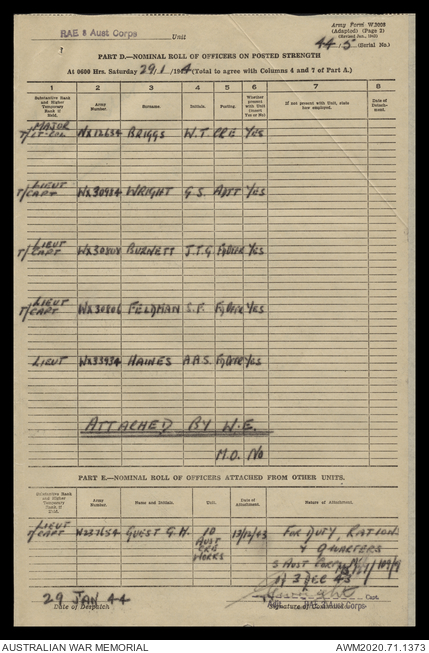 Army Form W.3008
(Adapted) (Page 2)
RAE 5 Aust Corps Unit
44/5 (Serial No.)
PART D.—NOMINAL ROLL OF OFFICERS ON POSTED STRENGTH
At 0600 Hrs. Saturday 29/1/1944 (Total to agree with Columns 4 and 7 of Part A.)
1 2 3 4 5 6 7 8
Substantive Rank and Higher Temporary Rank if Held. Army Number. Surname. Initials. Posting. Whether present with Unit (Insert Yes or No) If not present with Unit, state how employed. Date of Detachment.
MAJOR
T/LT-COL BRIGGS W.T CRE YES
LIEUT
T/CAPT WRIGHT G.S. ADJT YES
LIEUT
T/CAPT BURNETT J.T.G YES
LIEUT
T/CAPT FELDMAN S.F. YES
LIEUT HAINES A.A.S. YES
ATTACHED BY W.E.
M.O. NO
PART E.—NOMINAL ROLL OF OFFICERS ATTACHED FROM OTHER UNITS.
Substantive Rank and Higher Temporary Rank if Held. Army Number. Name and Initials. Unit. Date of Attachment. Nature of Attachment.
LIEUT
T/CAPT GUEST G.H. 10 AUST CRE WORKS 13/12/43 FOR DUTY, RATIONS
& QUARTERS
5 AUST CORPS
d/ 3 DEC 43
29 JAN 44 Capt.
Date of Despatch Aust Corps
AUSTRALIAN WAR MEMORIAL AWM2020.71.1373